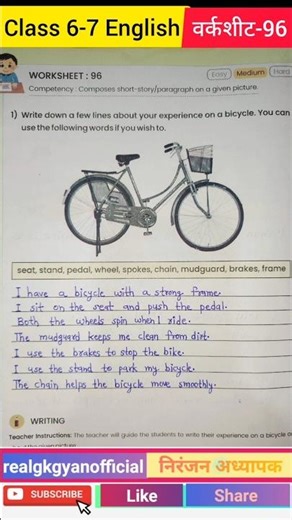 Class 6-7 English वर्कशीट-96
WORKSHEET : 96
Easy Medium Hard
Competency : Composes short-story/paragraph on a given picture.
1) Write down a few lines about your experience on a bicycle. You can
use the following words if you wish to.
seat, stand, pedal, wheel, spokes, chain, mudguard, brakes, frame
I have a bicycle with a strong frame.
I sit on the seat and push the pedal.
Both the wheels spin when I ride.
The mudguard keeps me clean from dirt.
I use the brakes to stop the bike.
I use the stand to park my bicycle.
The chain helps the bicycle move smoothly.
WRITING
Teacher Instructions: The teacher will guide the students to write their experience on a bicycle
realgkgyanofficial निरंजन अध्यापक
SUBSCRIBE Like Share